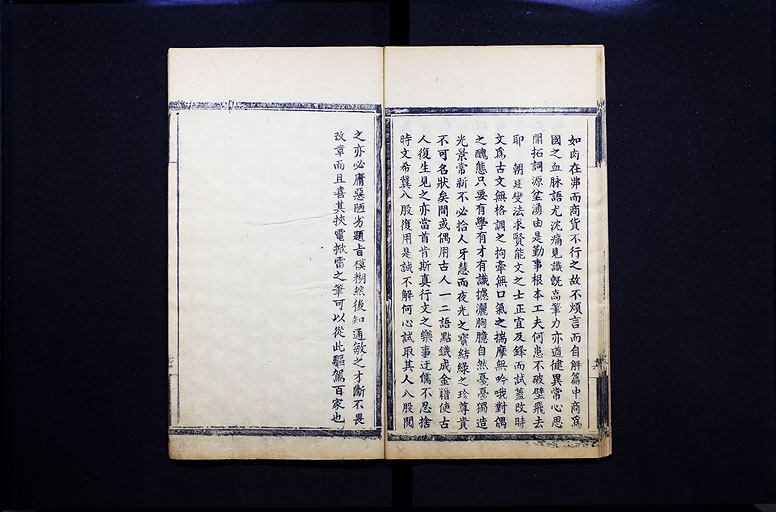 如肉在弗而商貨不行之故不煩言而自解篇中商為
國之血脉語尤沈痛見識旣高筆力亦遒健異常心思
開拓詞源坌湧由是勤事根本工夫何患不破壁飛去
耶 朝廷變法求賢能文之士正宜及鋒而試蓋改時
文爲古文無格調之拘牽無口氣之揣摩無吟哦對偶
之醜態只要有學有才有識攄灑胸臆自然戞戞獨造
光景常新不必拾人牙慧而夜光之寳結綠之珍尊貴
不可名狀矣間或偶用古人一二語點鐵成金藉使古
人復生見之亦當首肯斯真行文之樂事迂儒不忍捨
時文希冀八股復用是誠不解何心試取其人八股閱
之亦必庸惡陋劣題旨模糊然後知通敏之才斷不畏
改章而且喜其挾電掀雷之筆可以從此驅駕百家也